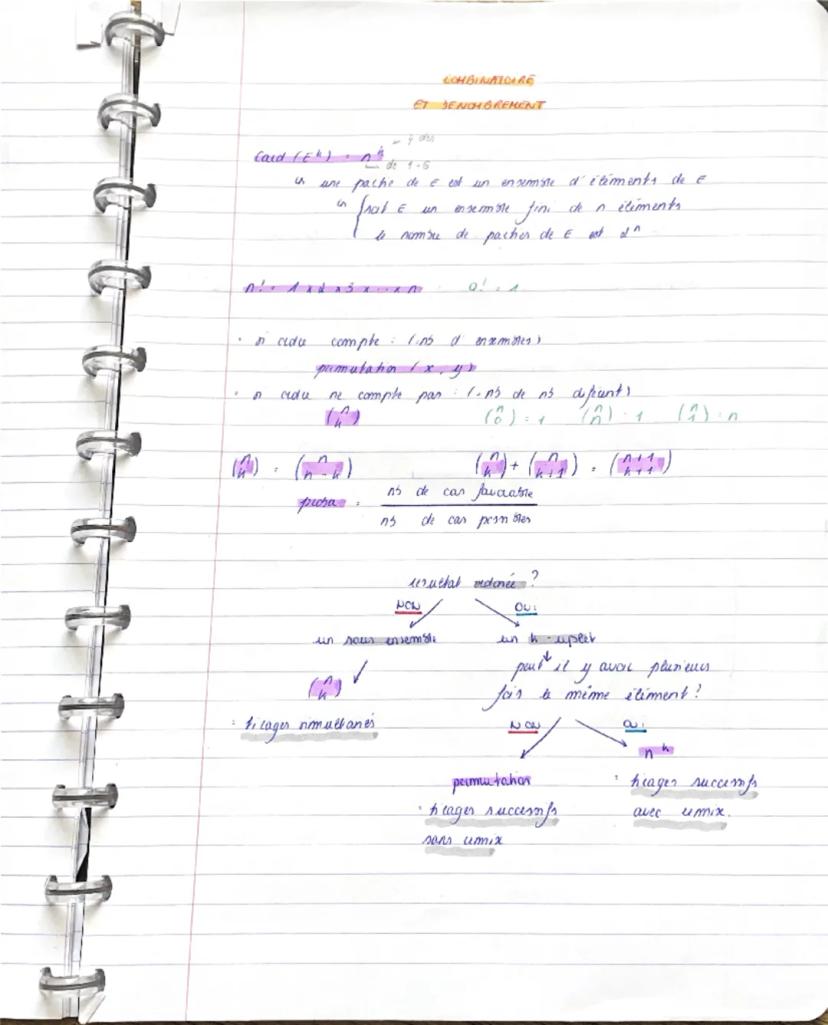 COMBINATOIRE
ET DENOMBREMENT
Card (E^k) = n^k
de 1-6
↳ une partie de E est un ensemble d'éléments de E
↳ { soit E un ensemble fini de n éléments
le nombre de parties de E est 2^n
n! = 1 x 2 x 3 x ... x n 0! = 1
• si ordre compte : (nb d'ensembles)
permutation (x, y)
• si ordre ne compte pas : (nb de nb différent)
(n k) (n 0) = 1 (n n) = 1 (n 1) = n
(n k) = (n n-k) (n k) + (n k+1) = (n+1 k+1)
proba = nb de cas favorable
nb de cas possibles
résultat ordonée ?
NON OUI
un sous ensemble un k-uplet
peut il y avoir plusieurs
(n k) fois le même élément ?
= tirages simultanés NON OUI
n^k
permutation = tirages successifs
= tirages successifs avec remix.
sans remix